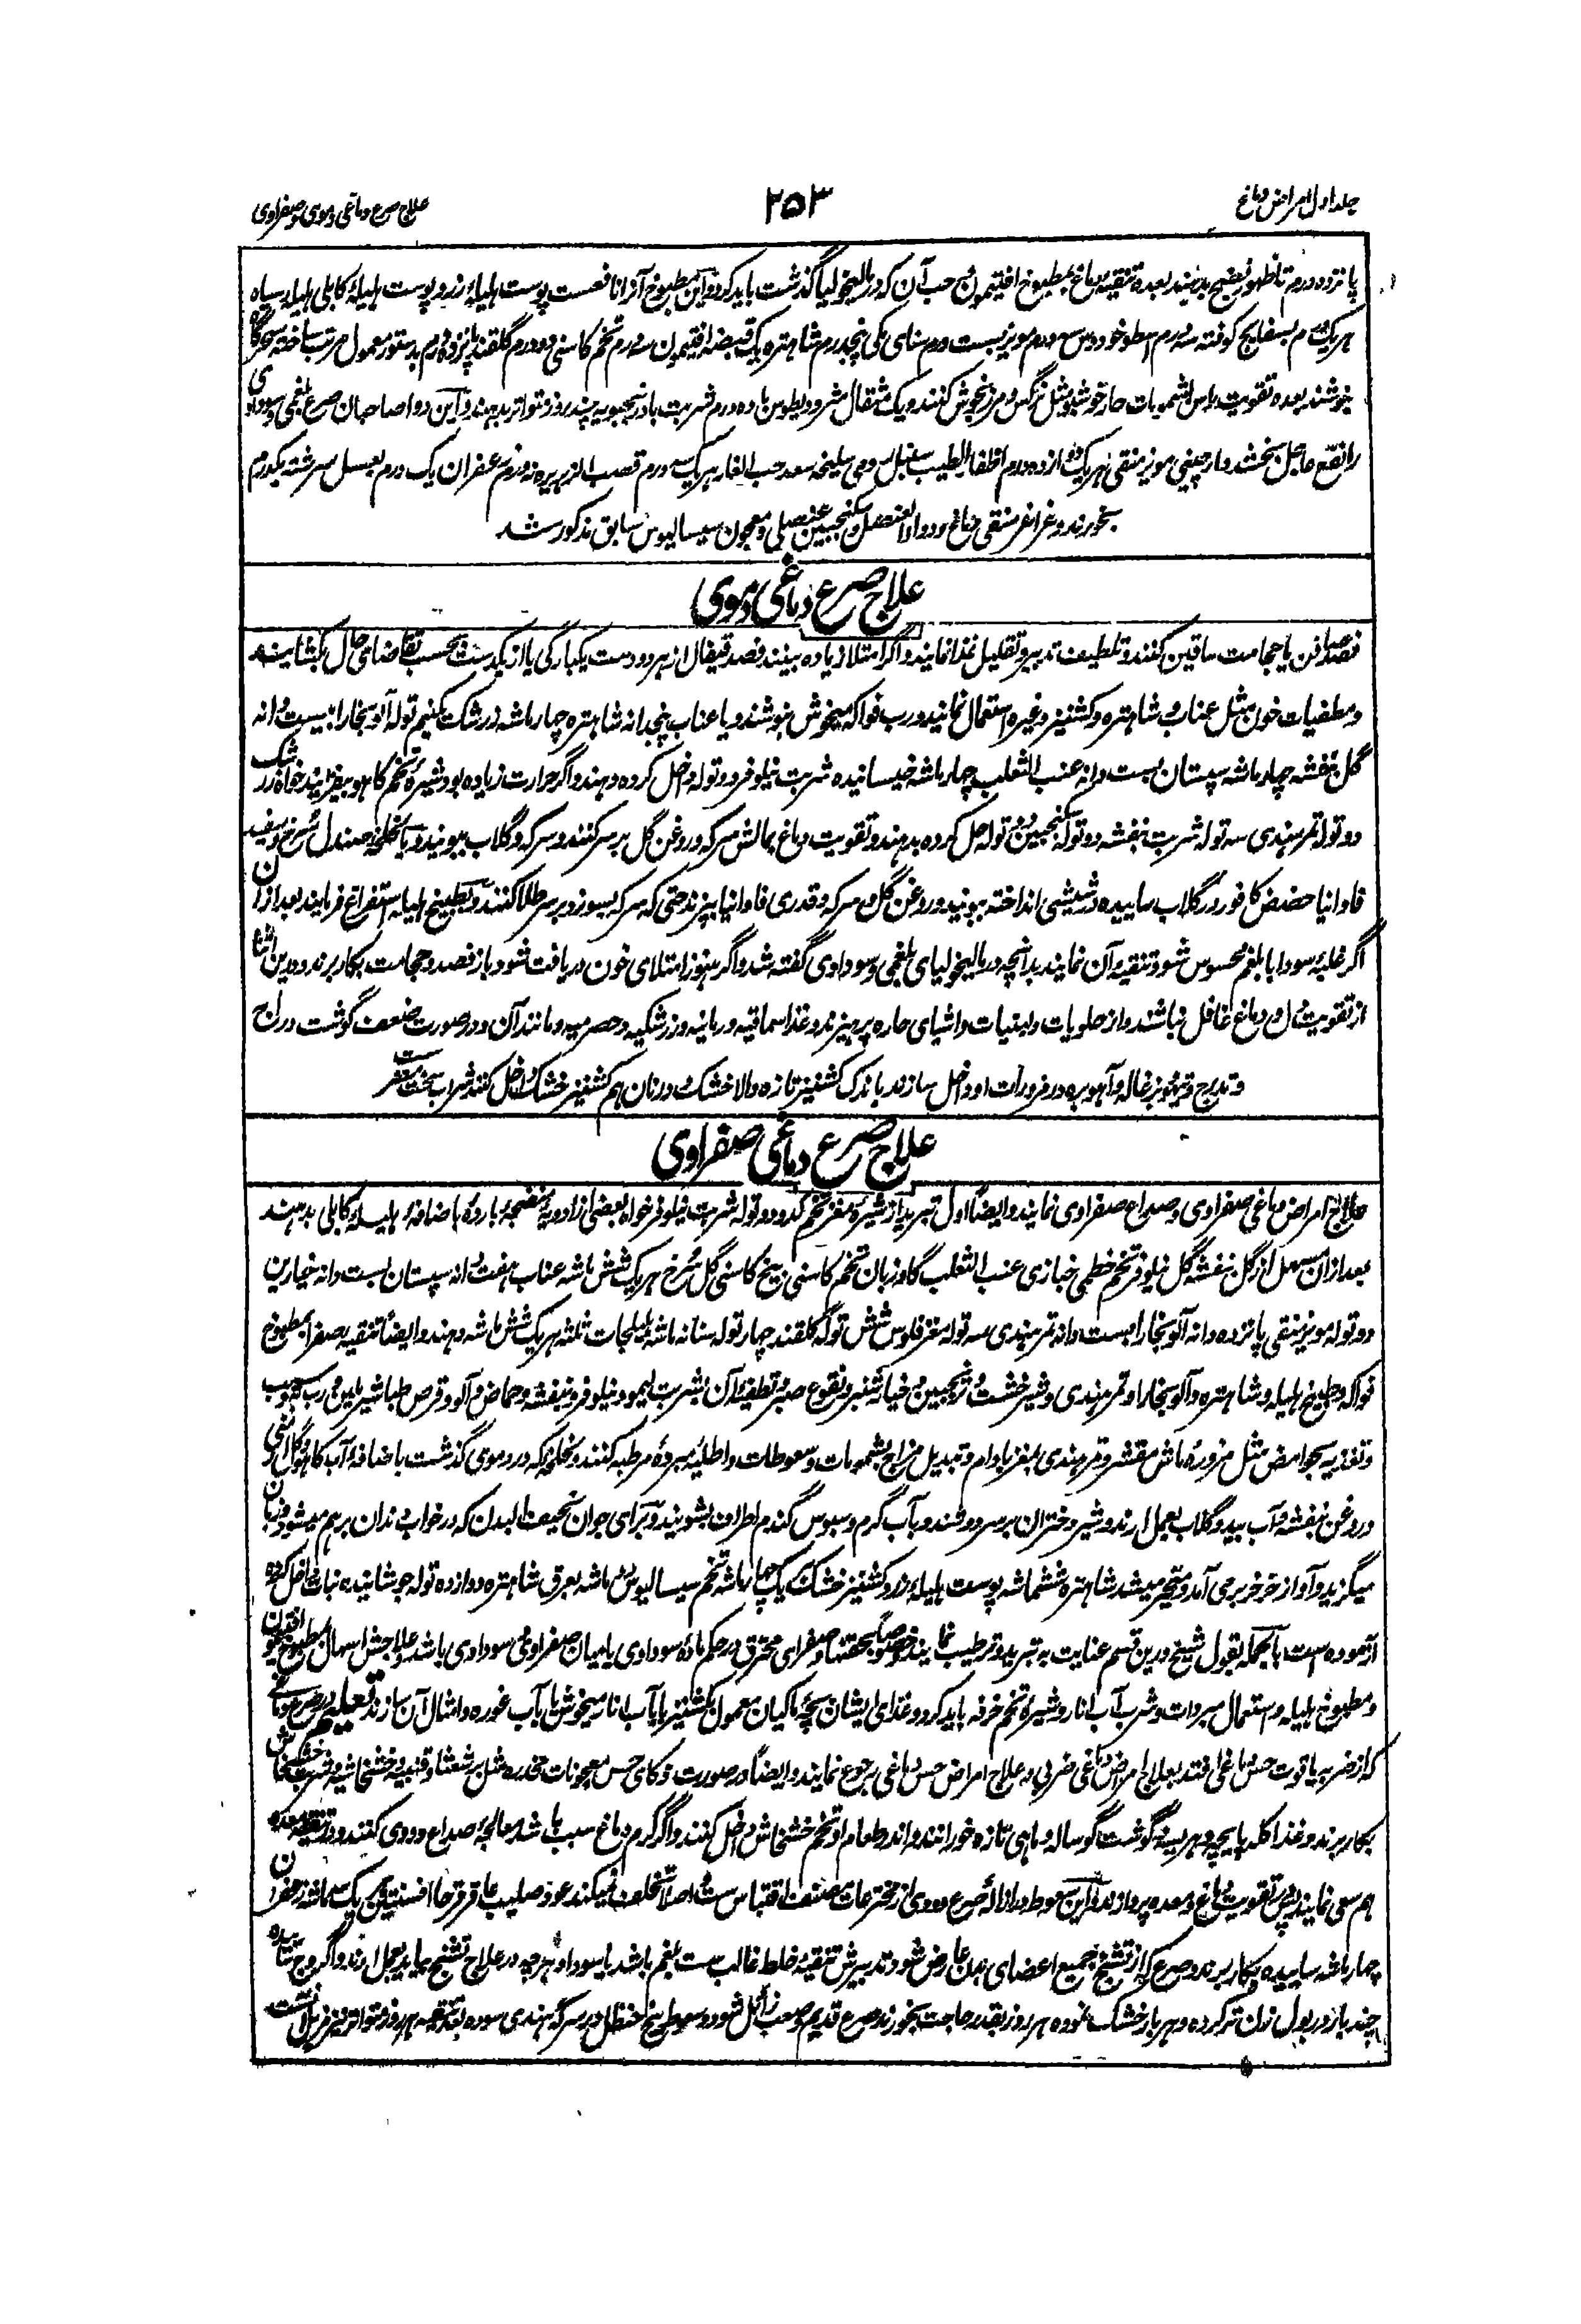 جلد اول امراض دماغ
۲۵۳
علاج صرع دماغی دموی و صفراوی
پانزده درم تا ظهور نضج بدهند بعده تنقیه دماغ بمطبوخ افتیمون و حب آن که در مالیخولیا گذشت باید کرد و این مطبوخ آنرا نافعست پوست هلیله زرد و پوست هلیله کابلی هلیله سیاه
هر یک درم بسفایج کوفته سه درم اسطوخودوس سه درم مویز بیست درم سنای مکی پنجدرم شاهتره یک قبضه افتیمون سه درم تخم کاسنی دو درم گلقند پانزده درم بدستور معمول مرتب ساخته
بنوشند بعده تقویت راس بشمومات حار خوشبو مثل نرگس و مرزنجوش کنند و یک مثقال مثرودیطوس با ده درم شربت بادرنجبویه چند روز متواتر بدهند و این دوا صاحبان صرع بلغمی و سوداوی
را نفع عاجل بخشد دارچینی مویز منقی هر یک دوازده درم اظفار الطیب سنبل رومی سلیخه سعد حب الغار هر یک سه درم قصب الذریره نه درم زعفران یک درم بعسل سرشته یکدرم
بخورند و غراغر منقی دماغ و دواء العنصل و سکنجبین عنصلی و معجون سیسالیوس سابق مذکور شد
علاج صرع دماغی دموی
فصد صافن یا حجامت ساقین کنند و تلطیف تدبیر و تقلیل غذا نمایند و اگر امتلا زیاده بینند فصد قیفال از هر دو دست یکبارگی یا از یکدست بحسب تقاضای حال بکشایند
و مطفیات خون مثل عناب و شاهتره و کشنیز و غیره استعمال نمایند و رب فواکه میخوش بنوشند و یا عناب پنجدانه شاهتره چهار ماشه زرشک نیم توله آلو بخارا بیست دانه
گل بنفشه چهار ماشه سپستان بست دانه عنب الثعلب چهار ماشه خیسانیده شربت نیلوفر دو توله داخل کرده دهند و اگر حرارت زیاده بود شیره تخم کاهو بیفزایند خواه زرشک
دو توله تمر هندی سه توله شربت بنفشه دو توله سکنجبین دو توله حل کرده بدهند و تقویت دماغ بمالش سرکه و روغن گل بر سر کنند و سرکه و گلاب ببویند و یا لخلخه صندل سرخ و سفید
فاوانیا حضض کافور در گلاب ساییده در شیشی انداخته ببویند و روغن گل و سرکه و قدری فاوانیا بپزند حتی که سرکه بسوزد بر سر طلا کنند و بطبیخ هلیله استفراغ فرمایند بعد از آن
اگر غلبه سودا یا بلغم محسوس شود تنقیه آن نمایند بدانچه در مالیخولیای بلغمی و سوداوی گفته شد و اگر هنوز امتلای خون دریافت شود باز فصد و حجامت بکار برند و درین اثنا
از تقویت دل و دماغ غافل نباشند و از حلویات و لبنیات و اشیای حاره پرهیزند و غذا سماقیه و رمانیه و زرشکیه و حصرمیه و مانند آن و در صورت ضعف گوشت دراج
و تدرج و تیهو و بزغاله و آهو بره در مزورات او داخل سازند با اندک کشنیز تازه والا خشک و در نان هم کشنیز خشک داخل کنند شراب سخت مضر ست
علاج صرع دماغی صفراوی
علاج امراض دماغی صفراوی و صداع صفراوی نمایند و ایضا اول تبرید از شیره مغز تخم کدو دو توله شربت نیلوفر خواه بعضی از ادویه منضجه بارده باضافه هلیله کابلی بدهند
بعد ازان مسهل از گل بنفشه گل نیلوفر تخم خطمی خبازی عنب الثعلب گاوزبان تخم کاسنی بیخ کاسنی گل سرخ هر یک شش ماشه عناب هفت دانه سپستان بست دانه خیارین
دو توله مویز منقی پانزده دانه آلو بخارا بست دانه تمر هندی سه توله مغز فلوس شش توله گلقند چهار توله سنا نه ماشه هلیلجات ثلثه هر یک شش ماشه دهند و ایضا تنقیه صفرا بمطبوخ
فواکه و طبیخ هلیله و شاهتره و آلو بخارا و تمر هندی و شیرخشت و ترنجبین و خیارشنبر و نقوع صبر و تطفیه آن بشربت لیمو و نیلوفر و بنفشه و حماض و آلو و قرص طباشیر ملین و رب
و تغذیه بحوامض مثل مزوره ماش مقشر و تمر هندی بمغز بادام و تبدیل مزاج بشمومات و سعوطات و اطلیه مبرده مرطبه کنند و لخلخه که در دموی گذشت باضافه آب کاهو
و روغن بنفشه و آب بید و گلاب بعمل آرند و شیر دختران بر سر دوشند و بآب گرم و سبوس گندم اطراف بشویند و برای جوان نحیف البدن که در خواب دندان بر هم میشود و زبان
میگزید و آواز خرخر برمی آمد و متحیر میشد شاهتره ششماشه پوست هلیله زرد و کشنیز خشک هر یک چهار ماشه تخم سیسالیوس ماشه بعرق شاهتره دوازده توله جوشانیده نبات داخل کرده
آزموده است بالجمله بقول شیخ درین قسم عنایت به تبرید و ترطیب نمایند خصوصا بحقنها و صفرای محترق در حکم ماده سوداوی یا میان صفراوی و سوداوی باشد و علاجش اسهال بمطبوخ افتیمون
و مطبوخ هلیله و استعمال مبردات و شرب آب انار و شیره تخم خرفه باید کرد و غذای ایشان بچه ماکیان معمول بکشنیز یا بآب انار میخوش یا بآب غوره و امثال آن سازند تعلیم در صرع دماغی
که از ضربه یا قوت حس دماغ افتد بعلاج امراض دماغی ضربی و علاج امراض حس دماغی رجوع نمایند و ایضا در صورت ذکای حس معجونات مخدره مثل برشعثا و قنبیه و خشخاشیه و شربت خشخاش
بکار برند و غذا کله پایچه و هریسه و گوشت گوساله و ماهی تازه خورانند و اندر طعام او تخم خشخاش داخل کنند و اگر کرم دماغ سبب باشد معالجه صداع دودی کنند و در تنقیه معده
هم سعی نمایند پس بتقویت دماغ و معده پردازند و این سعوط در ازاله صرع دودی از مخترعات مصنف اقتباس ست و اصلا تخلف نمیکند عود صلیب عاقرقرحا افسنتین هر یک ماشه زعفران
چهار ماشه ساییده بکار برند و صرع که از تشنج جمیع اعضای بدن عارض شود تدبیرش تنقیه خلط غالب ست بلغم باشد یا سودا و هرچه در علاج تشنج بیاید بعمل آرند و اگر
چند بار در بول زنان تر کرده و هر بار خشک نموده هر روز بقدر حاجت بخورند صرع قدیم و صعب زائل شود و سعوط بیخ حنظل در سرکه هندی سوده